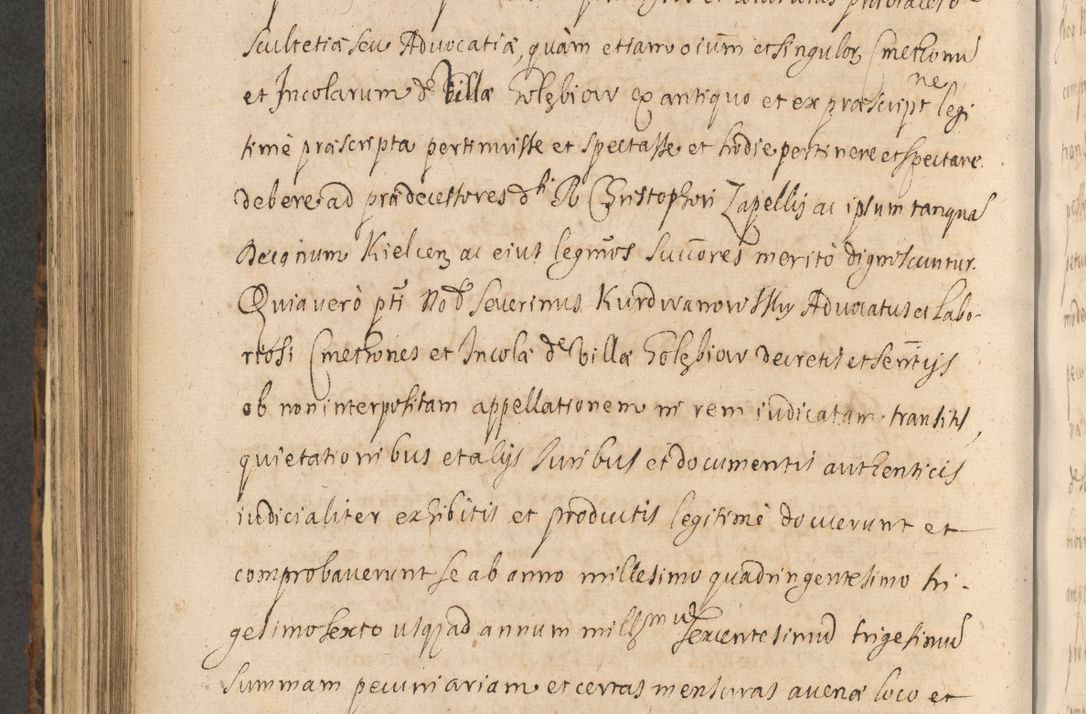 Scultetiæ seu Advocatiæ, quàm etiam oium et singulor Cmethonũ
et Incolarum dæ Villæ Golębiow ex antiquo et ex præscriptne legi
timè præscripta pertinuisse et spectasse et hodie pertinere et spectare
debere ad prædecessores dti R Christophori Zapellij ac ipsum tanquã
Decanum Kielcen ac eius legmos Succores meritò dignoscuntur.
Quia verò pti Nob Severinus Kurdwanowsky Advocatus et Labo-
riosi Cmethones et Incolæ de Villæ Golębiow decretis et sentijs
ob non interpositam appellationem in rem iudicatam transitis,
quietationibus et alijs Iuribus et documentis authenticis
iudicialiter exhibitis et productis legitimè docuerunt et
comprobaverunt se ab anno millesimo quadringentesimo tri-
gesimo sexto usqz ad annum millsmũ sexcentesimũ trigesimũ
summam pecuniariam et certas mensuras avenæ loco et